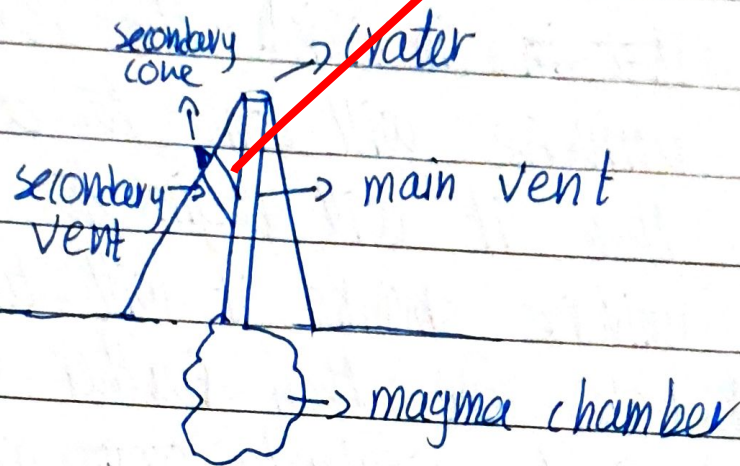 secondary
cone
crater
secondary
vent
main vent
magma chamber